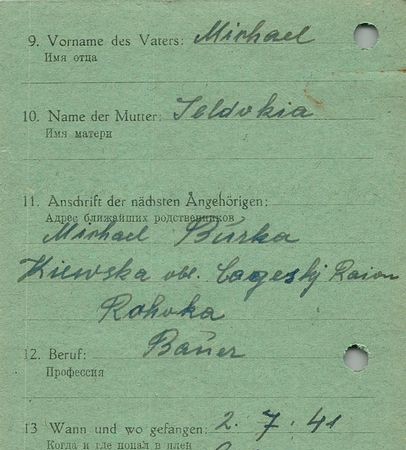 9. Vorname des Vaters: Michael
Имя отца
10. Name der Mutter: Jeldokia
Имя матери
11. Anschrift der nächsten Angehörigen:
Адрес ближайших родственников
Michael Burka
Kiewska obl. Raion
Rohovka
12. Beruf: Bauer
Профессия
13 Wann und wo gefangen: 2. 7. 41
Когда и где попал в плен